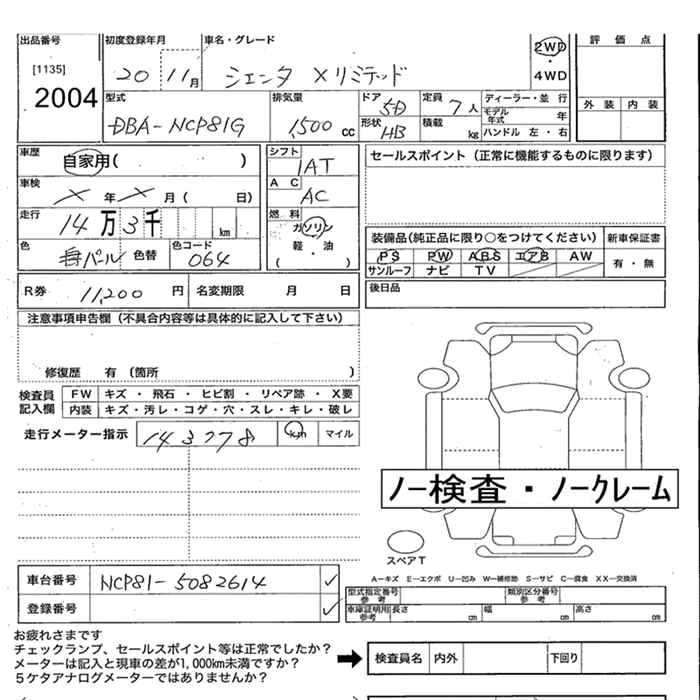 出品番号
[1135]
2004
初度登録年月
20 11月
車名・グレード
シエンタ Xリミテッド
2WD
・
4WD
評価点
外装 内装
型式
DBA-NCP81G
排気量
1,500 cc
ドア 5D
形状 HB
定員 7人
積載 kg
ディーラー・並行
モデル年式 年
ハンドル 左・右
車歴
自家用( )
車検
X年X月( 日)
走行
14万3千 km
色
パール 色替
色コード
064
シフト
IAT
AC
AC
燃料
ガソリン
軽・油
( )
セールスポイント(正常に機能するものに限ります)
装備品(純正品に限り○をつけてください)
PS PW ABS エアB AW
サンルーフ ナビ TV
新車保証書
有・無
後日品
R券 11,200円
名変期限 月 日
注意事項申告欄(不具合内容等は具体的に記入して下さい)
修復歴 有(箇所 )
検査員記入欄
FW キズ・飛石・ヒビ割・リペア跡・X要
内装 キズ・汚レ・コゲ・穴・スレ・キレ・破レ
走行メーター指示 143778 km マイル
ノー検査・ノークレーム
スペアT
A-キズ E-エクボ U-凹み W-補修跡 S-サビ C-腐食 XX-交換済
車台番号 NCP81-5082614 ✓
登録番号 ✓
型式指定番号参考
類別区分番号参考
車庫証明用参考 長さ cm 幅 cm 高さ cm
お疲れさまです
チェックランプ、セールスポイント等は正常でしたか?
メーターは記入と現車の差が1,000km未満ですか?
5ケタアナログメーターではありませんか?
検査員名 内外 下回り